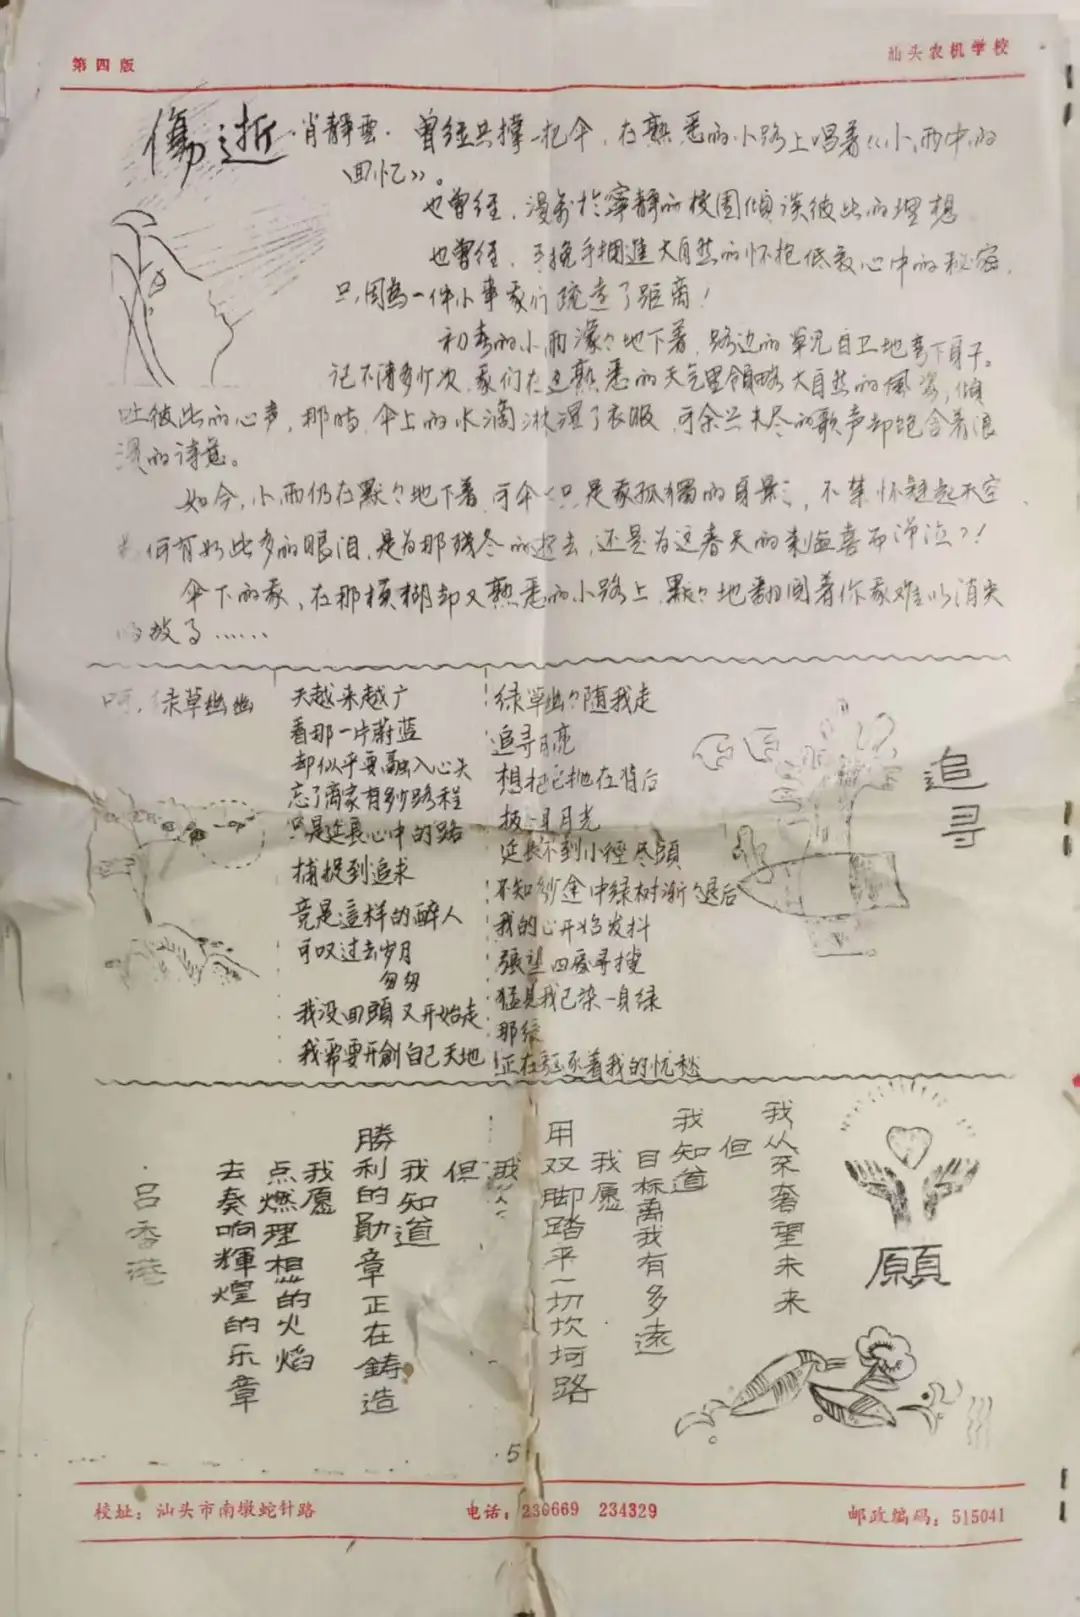 第四版
汕头农机学校
傷逝
·肖靜雲·
曾经共撑一把伞，在熟悉的小路上唱着《小雨中的
回忆》。
也曾经，漫步扵寧静的校园倾谈彼此的理想
也曾经，手挽手拥進大自然的怀抱低衷心中的秘密，
只，因為一件小事我们疏遠了距离！
初春的小雨濛々地下着，路边的草儿自卫地弯下身子。
记不清多少次，我们在这熟悉的天气里领略大自然的風姿，倾
吐彼此的心声，那時，伞上的水滴湫湿了衣服，可余兴未尽的歌声却饱含着浪
漫的诗意。
如今，小雨仍在默々地下着，可伞下只是我孤獨的身影，不禁怀疑起天空
何有如此多的眼泪，是为那残冬的逝去，还是为这春天的来临喜而泣？！
伞下的我，在那模糊却又熟悉的小路上，默々地翻阅着你我难以消失
的故事……
呵，绿草幽幽
天越来越广
看那一片蔚蓝
却似乎要融入心头
忘了离家有多少路程
只是延長心中的路
捕捉到追求
竟是這样的醉人
可叹过去岁月
匆匆
我没回頭又开始走
我需要开創自己天地
绿草幽々随我走
追寻月亮
想把它抛在背后
披一身月光
延長不到小徑尽頭
不知沙途中绿树渐々退后
我的心开始发抖
張望四處寻搜
猛見我已染一身绿
那绿
正在驱逐着我的忧愁
追寻
願
我从不奢望未来
但
我知道
目标离我有多遠
我愿
用双脚踏平一切坎坷路
我从
但
我知道
勝利的勛章正在鑄造
我愿
点燃理想的火焰
去奏响輝煌的乐章
·吕香港
·5·
校址：汕头市南墩蛇针路
电话：230669 234329
邮政编码：515041